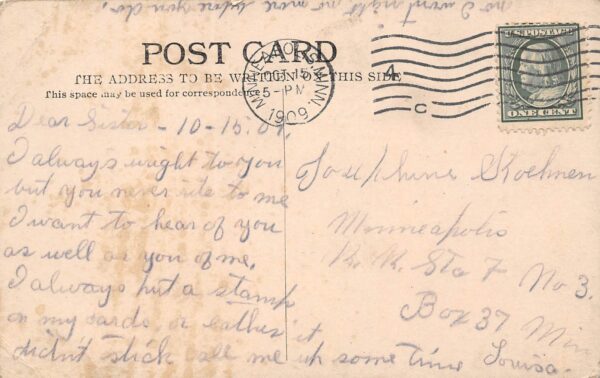 no I wont right no more before you do.
POST CARD
THE ADDRESS TO BE WRITTEN ON THIS SIDE
This space may be used for correspondence
MINNEAPOLIS, MINN.
OCT 15
5-PM
1909
4
C
U.S. POSTAGE
ONE CENT
Dear Sister - 10-15.09.
I always wright to you
but you never rite to me
I want to hear of you
as well as you of me.
I always put a stamp
on my cards, or eather it
didn't stick call me up some time Louisa.
Josiphine
Minneapolis
R. R. Sta F No 3.
Box 37 Min